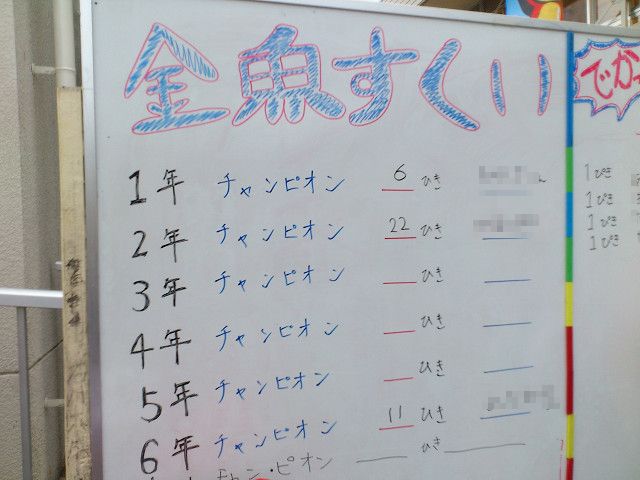 金魚すくい
1年 チャンピオン 6 ひき
2年 チャンピオン 22 ひき
3年 チャンピオン ひき
4年 チャンピオン ひき
5年 チャンピオン ひき
6年 チャンピオン 11 ひき
チャンピオン ひき
でか
1ぴき
1ぴき
1ぴき
1ぴき